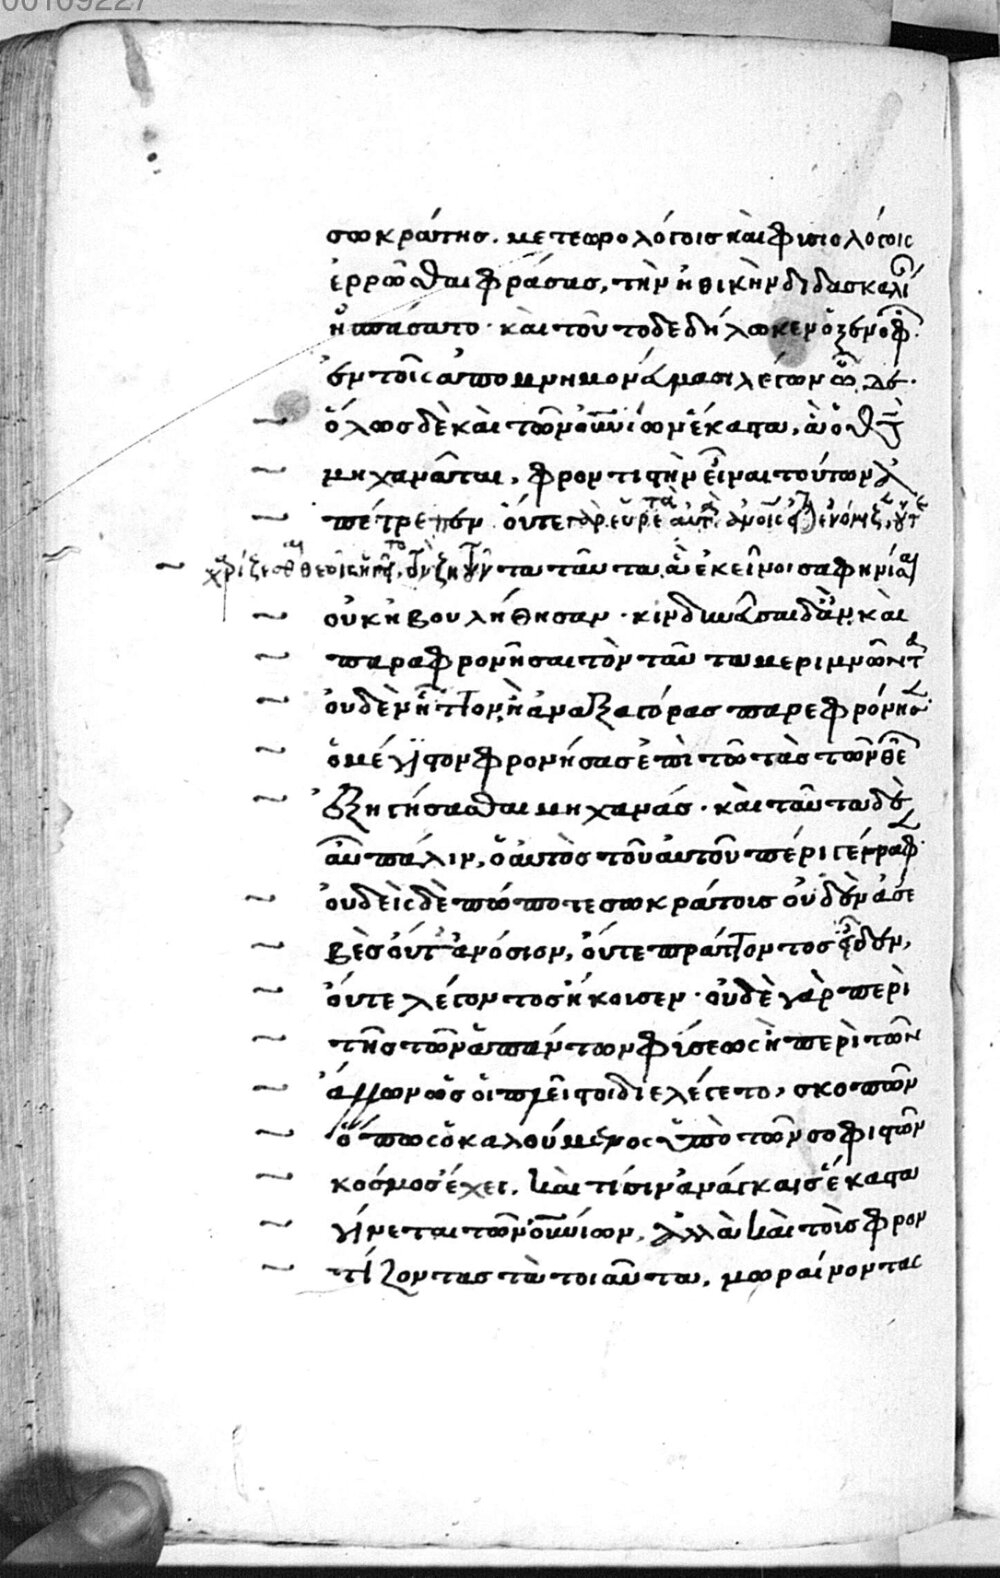 00109227
σωκράτης. μετεωρολόγοις καὶ φυσιολόγοις
ἐρρῶσθαι φράσας, τὴν ἠθικὴν διδασκαλί
ἠσπάσατο· καὶ τοῦτο δεδήλωκεν ὁ ξενοφ
ἐν τοῖς ἀπομνημονεύμασι λέγων ὧδε·
ὅλως δὲ καὶ τῶν οὐνίων ἕκαστα, ὁ θς
μηχανᾶται, φροντιστὴν εἶναι τούτων
ἀπέτρεπεν οὔτε γὰρ εὑρετὰ αὐτὰ ἀνοις ἐνόμιζεν οὔτε
χαρίζεσθαι θεοῖς ζητοῦντα ταῦτα ἃ ἐκεῖνοι σαφηνίσαι
οὐκ ἠβουλήθησαν· κινδυνεῦσαι δ᾽ ἂν καὶ
παραφρονῆσαι τὸν ταῦτα μεριμνῶντα
οὐδὲν ἧττον, ἢ ἀναξαγόρας παρεφρόνησεν
ὁ μέγιστον φρονήσας ἐπὶ τῶ τὰς τῶν θε
ἐξηγήσασθαι μηχανάς· καὶ ταῦτα δὲ
αὖ πάλιν, ὁ αὐτὸς τοῦ αὐτοῦ πέρι γέγραφεν
οὐδεὶς δὲ πώποτε σωκράτους οὐδὲν ἀσε
βὲς οὔτ᾽ ἀνόσιον, οὔτε πράττοντος εἶδεν,
οὔτε λέγοντος ἤκουσεν· οὐδὲ γὰρ περὶ
τῆς τῶν ἁπάντων φύσεως ἢ περὶ τῶν
ἄλλων ὡς οἱ πλεῖστοι διελέγετο, σκοπῶν
ὅπως ὁ καλούμενος ὑπὸ τῶν σοφιστῶν
κόσμος ἔχει. καὶ τίσιν ἀνάγκαις ἕκαστα
γίνεται τῶν οὐνίων, ἀλλὰ καὶ τοὺς φρον
τίζοντας τὰ τοιαῦτα, μωραίνοντας